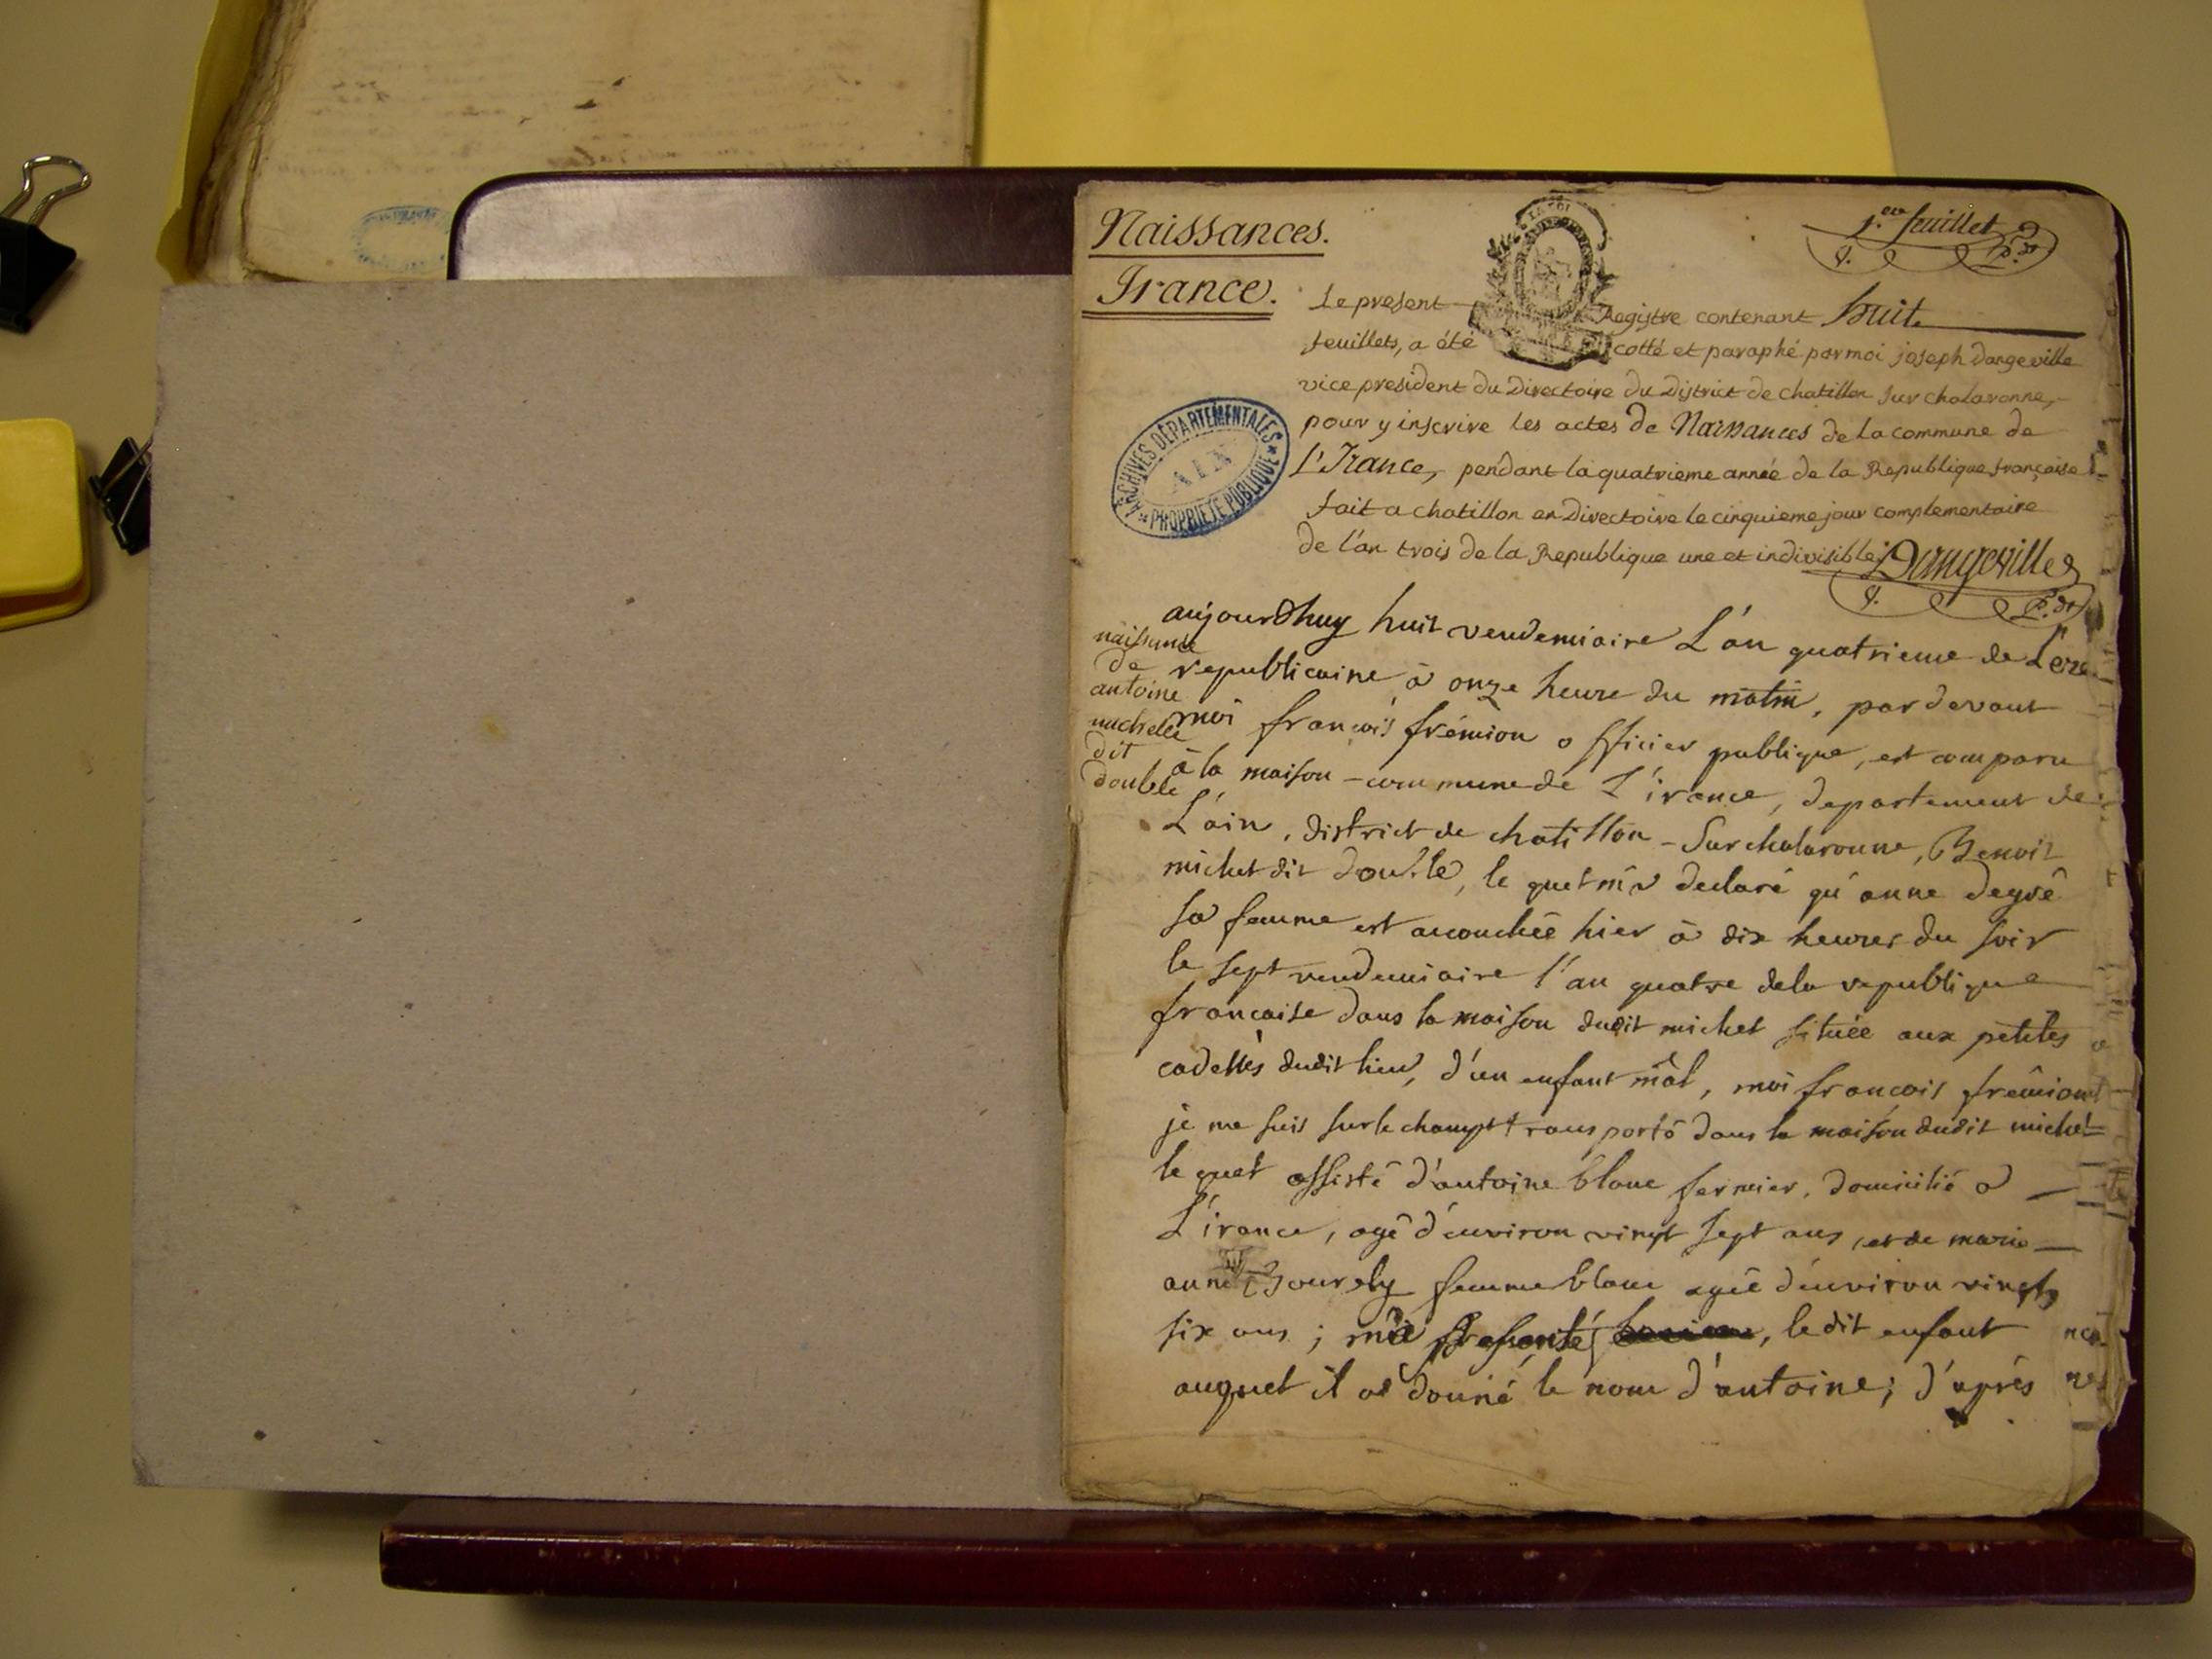 Naissances.
Irance.
1.er feuillet
Le present Registre contenant huit
feuillets, a été cotté et paraphé par moi joseph Dangeville
vice president du Directoire du District de chatillon sur chalaronne,
pour y inscrire les actes de Naissances de la commune de
l'Irance, pendant la quatrieme année de la Republique française
fait a chatillon en Directoire le cinquieme jour complementaire
de l'an trois de la Republique une et indivisible. Dangeville
ARCHIVES DÉPARTEMENTALES
AIN
PROPRIÉTÉ PUBLIQUE
naissance
de
antoine
michel
dit
double
aujourdhuy huit vendemiaire L'an quatrieme de L'ere
republicaine à onze heure du matin, pardevant
moi françois frémion officier publique, est comparu
à la maison - commune de L'irance, departement de
L'ain, district de chatillon - Sur chalaronne, Benoit
michet dit double, le quel m'a declaré qu'anne degré
sa femme est acouchée hier à dix heures du soir
le sept vendemiaire l'an quatre dela republique
francaise dans la maison dudit michet située aux petites
cadettes dudit lieu, d'un enfant mâl, moi françois frémion
je me suis sur le champt transporté dans la maison dudit michet
le quel assisté d'antoine blanc fermier, domicilié a
L'irance, agé d'environ vingt sept ans, et de marie
anne femme blanc agée d'environ vingt
six ans ; m'a presenté, ledit enfant
auquel il a donné le nom d'antoine ; d'après